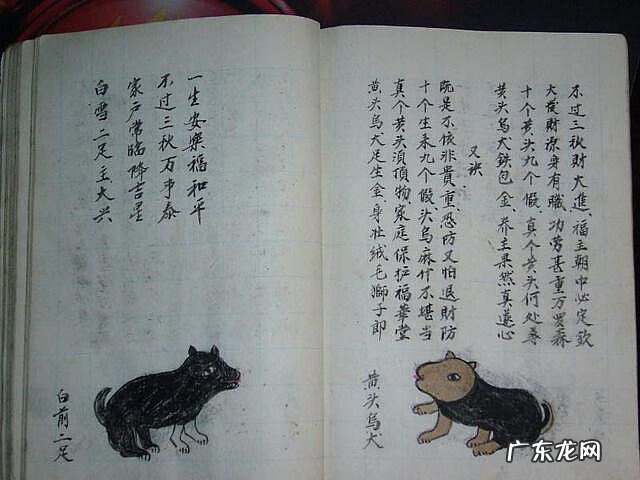 不过三秋財大進、福主朝中必定致
大發財源身有職 功劳甚重万罗森
十个黄头九个假、真个黄头何处尋
黄头乌犬鉄包金、养主果然真遂心
又诀
既是不依非貴重、恐防又怕退財防
十个生来九个假、头乌麻什不堪当
真个黄头湏頂物、家庭保护福華堂
黄头乌犬足生金、身壮绒毛獅子即
黄头乌犬
一生安樂福和平
不过三秋万事泰
家戶常臨降吉星
白雪二足主大兴
白前二足
广东龙网